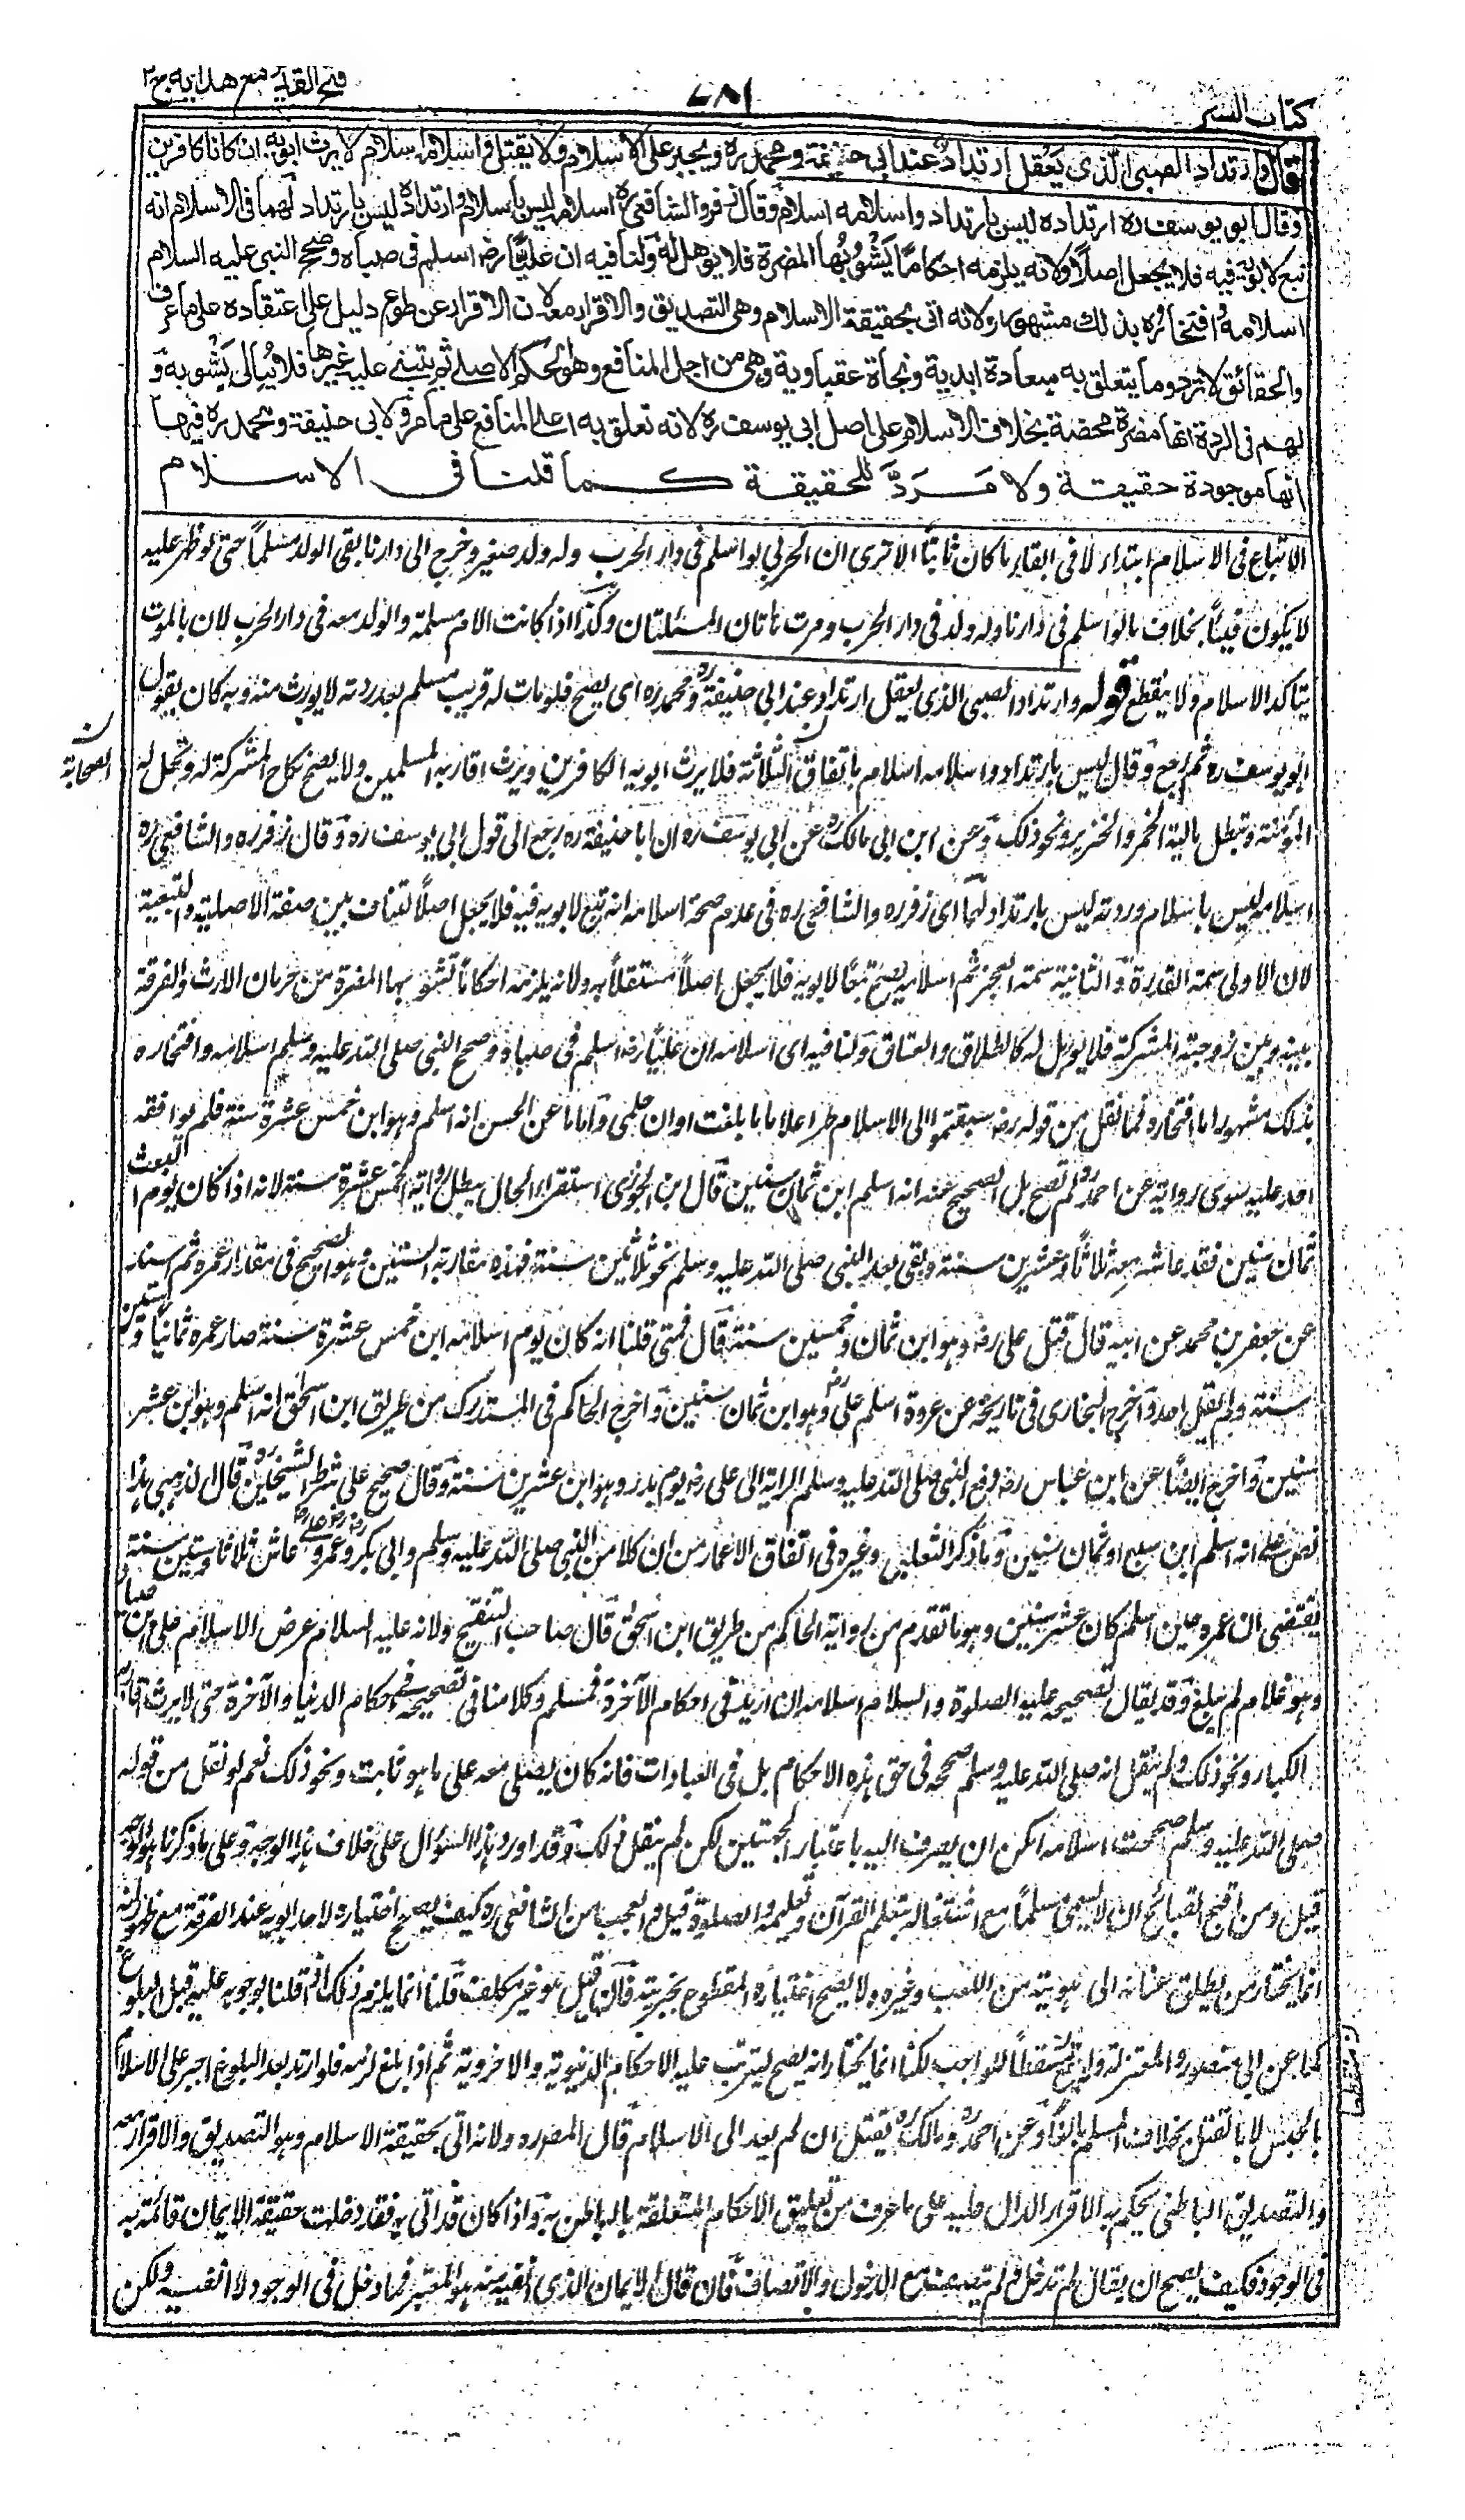 فتح القدير مع هدايه ج ٢
٧٨١
كتاب السير
قال وارتداد الصبى الذى يعقل ارتداد عند ابى حنيفة ومحمد ره ويجبر على الاسلام ولا يقتل واسلامه اسلام لا يرث ابويه ان كانا كافرين
وقال ابو يوسف ره ارتداده ليس بارتداد واسلامه اسلام وقال زفر والشافعى ره اسلامه ليس باسلام وارتداده ليس بارتداد لهما فى الاسلام انه
تبع لابويه فيه فلا يجعل اصلا ولانه يلزمه احكاما يَشُوبُها المضرة فلا يوهل له ولنا فيه ان عليا رض اسلم فى صباه وصحح النبى عليه السلام
اسلامه وافتخاره بذلك مشهور ولانه اتى بحقيقة الاسلام وهى التصديق والاقرار معه لان الاقرار عن طوع دليل على اعتقاده على ما عرف
والحقائق لا ترد وما يتعلق به سعادة ابدية ونجاة عقباوية وهى من اجل المنافع وهو الحكم الاصلى ثم يبتنى عليه غيرها فلا يبالى يشوبه و
لهم فى الردة انها مضرة محضة بخلاف الاسلام على اصل ابى يوسف ره لانه تعلق به اعلى المنافع على ما مر ولابى حنيفة ومحمد ره فيها
انها موجودة حقيقة ولا مَرَدَّ للحقيقة كما قلنا فى الاسلام
الاتباع فى الاسلام ابتداء لا فى ابقاء ما كان ثابتا الا ترى ان الحربى لو اسلم فى دار الحرب وله ولد صغير وخرج الى دارنا بقى الولد مسلما حتى لو ظهر عليه
لا يكون فيئا بخلاف ما لو اسلم فى دارنا وله ولد فى دار الحرب ومرت هاتان المسئلتان وكذا اذا كانت الام مسلمة والولد معه فى دار الحرب لان بالموت
يتاكد الاسلام ولا ينقطع قوله وارتداد الصبى الذى يعقل ارتداد عند ابى حنيفة ره ومحمد ره اى يصح فلو مات له قريب مسلم بعد ردته لا يورث منه وبه كان يقول
ابو يوسف ره ثم رجع وقال ليس بارتداد واسلامه اسلام باتفاق الثلاثة فلا يرث ابويه الكافرين ويرث اقاربه المسلمين ولا يصح نكاح المشركة له وتحل له
الصحابة
المؤمنة وتبطل مالية الخمر والخنزير ونحو ذلك وعن ابن ابى مالك ره عن ابى يوسف ره ان ابا حنيفة ره رجع الى قول ابى يوسف ره وقال زفر ره والشافعى ره
اسلامه ليس باسلام وردته ليس بارتداد لهما اى زفر ره والشافعى ره فى عدم صحة اسلامه انه تبع لابويه فيه فلا يجعل اصلا لتناف بين صفة الاصلية والتبعية
لان الاولى سمة القدرة والثانية سمة العجز ثم اسلامه يصح تبعا لابويه فلا يجعل اصلا مستقلا به ولانه يلزمه احكاما تشوبها المضرة من حرمان الارث والفرقة
بينه وبين زوجته المشركة فلا يوهل له كالطلاق والعتاق ولنا فيه اى اسلامه ان عليا رض اسلم فى صباه وصحح النبى صلى الله عليه وسلم اسلامه وافتخاره
بذلك مشهور اما افتخاره فما نقل من قوله رض سبقتموا الى الاسلام طرا غلاما ما بلغت اوان حلمى واما ما عن الحسن انه اسلم وهو ابن خمس عشرة سنة فلم يوافقه
احد عليه سوى رواية عن احمد ره ولم تصح بل الصحيح عنه انه اسلم ابن ثمان سنين قال ابن الجوزى استقراء الحال يبطل رواية الخمس عشرة سنة لانه اذا كان يوم البعث
ثمان سنين فقد عاش معه ثلاثا وعشرين سنة وبقى بعد النبى صلى الله عليه وسلم نحو ثلاثين سنة فهذه مقاربة الستين وهو الصحيح فى مقدار عمره ثم اسند
عن جعفر بن محمد عن ابيه قال قتل على رض وهو ابن ثمان وخمسين سنة قال فمتى قلنا انه كان يوم اسلامه ابن خمس عشرة سنة صار عمره ثمانيا وستين
سنة ولم يقله احد واخرج البخارى فى تاريخه عن عروة اسلم على رض وهو ابن ثمان سنين واخرج الحاكم فى المستدرك من طريق ابن اسحق انه اسلم وهو ابن عشر
سنين واخرج ايضا عن ابن عباس رض دفع النبى صلى الله عليه وسلم الراية الى على رض يوم بدر وهو ابن عشرين سنة وقال صحيح على شرط الشيخين ره قال الذهبى هذا
نص على انه اسلم ابن سبع او ثمان سنين وما ذكر الثعلبى وغيره فى اتفاق الاعمار من ان كلا من النبى صلى الله عليه وسلم وابى بكر وعمر وعلى رض عاش ثلاثا وستين سنة
يقتضى ان عمره حين اسلم كان عشر سنين وهو ما تقدم من رواية الحاكم من طريق ابن اسحق قال صاحب التنقيح ولانه عليه السلام عرض الاسلام على ابن صياد
وهو غلام لم يبلغ وقد يقال تصحيحه عليه الصلوة والسلام اسلامه ان اريد فى احكام الآخرة فمسلم وكلامنا فى تصحيحه فى احكام الدنيا والآخرة حتى لا يرث اقاربه
الكفار ونحو ذلك ولم ينقل انه صلى الله عليه وسلم صححه فى حق هذه الاحكام بل فى العبادات فانه كان يصلى معه على ما هو ثابت ونحو ذلك نعم لو نقل من قوله
صلى الله عليه وسلم صححت اسلامه امكن ان يصرف اليه باعتبار الجهتين لكن لم ينقل ذلك وقد اورد هذا السؤال على خلاف هذا الوجه وعلى ما ذكرنا هو الوجه
قيل ومن اقبح القبائح ان لا يسمى مسلما مع اشتغاله بتعلم القرآن وتعليمه والصلوة قيل والعجب من الشافعى ره كيف يصح اختياره لاحد ابويه عند الفرقة مع ظهور انه
انما يختار من يطلق عنانه الى هويته من اللعب وغيره ولا يصح اختياره المقطوع بخيريته فان قيل هو غير مكلف قلنا انما يلزم ذلك اذ قلنا بوجوبه عليه قبل البلوغ
كما عن ابى منصور والمعتزلة وانه يقع مسقطا للواجب لكنا انما نختار انه يصح ليترتب عليه الاحكام الدنيوية والاخروية ثم اذا بلغ لزمه فلو ارتد بعد البلوغ اجبر على الاسلام
بالحبس لا بالقتل بخلاف المسلم بالغا وعن احمد ره ومالك ره يقتل ان لم يعد الى الاسلام قال المص ره ولانه اتى بحقيقة الاسلام وهو التصديق والاقرار معه
والتصديق الباطنى يحكم به الاقرار الدال عليه على ما عرف من تعليق الاحكام المتعلقة بالباطن به واذا كان قد اتى به فقد دخلت حقيقة الايمان قائمة به
فى الوجود فكيف يصح ان يقال لم تدخل ولم يتصف مع الدخول والاتصاف فان قال الايمان الذى انفيه منه هو المعتبر فما دخل فى الوجود لا انفيه ولكن